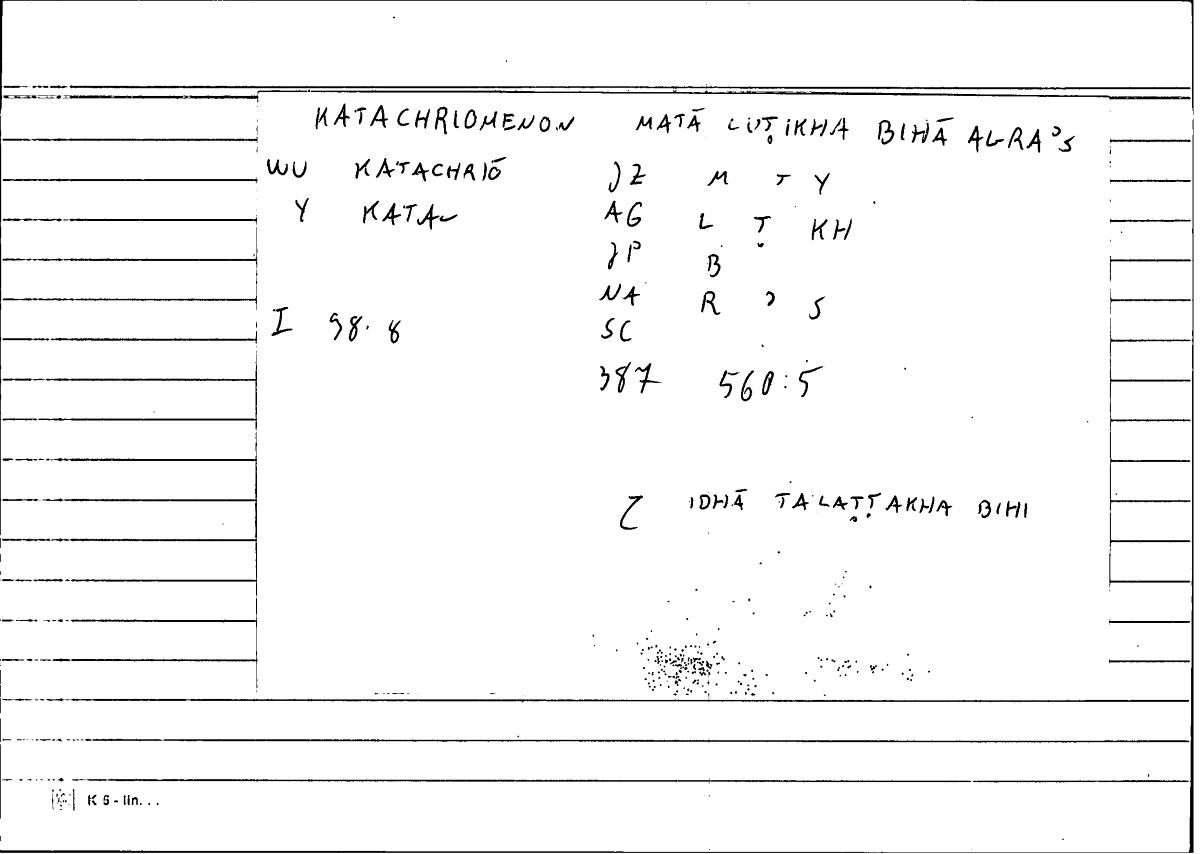 KATACHRIOMENON MATĀ LUṬIKHA BIHĀ AL-RAʾS
WU KATACHRIŌ JZ M T Y
Y KATA- AG L Ṭ KH
JP B
NA R ʾ S
I 98.8 SC
387 560:5
C IDHĀ TALAṬṬAKHA BIHI
K 5 - lin...